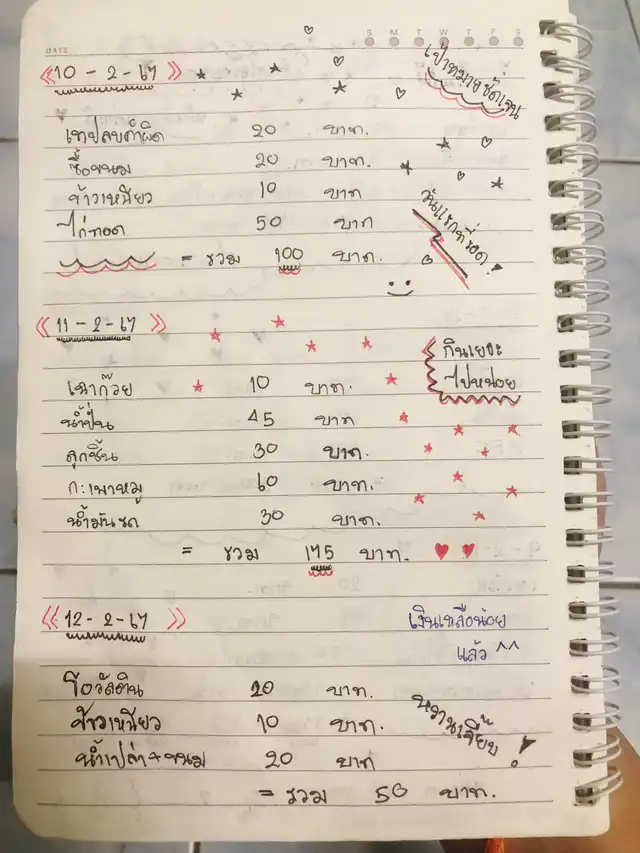 DATE
S M T W T F S
《10 - 2 - 67》
เป้าหมายซัดเงิน
เทปลบคำผิด 20 บาท.
ซื้อขนม 20 บาท.
ข้าวเหนียว 10 บาท
ไก่ทอด 50 บาท
วันแรกที่รอด!
= รวม 100 บาท.
《11 - 2 - 67》
กินเยอะ
ไปหน่อย
เฉาก๊วย 10 บาท.
น้ำปั่น 45 บาท
ลูกชิ้น 30 บาท.
กะเพาหมู 60 บาท.
น้ำมันรถ 30 บาท.
= รวม 175 บาท.
《12 - 2 - 67》
เงินเหลือน้อย
แล้ว ^^
โอวัลติน 20 บาท.
ข้าวเหนียว 10 บาท.
หวานเจี๊ยบ!
น้ำเปล่า+ขนม 20 บาท
= รวม 50 บาท.